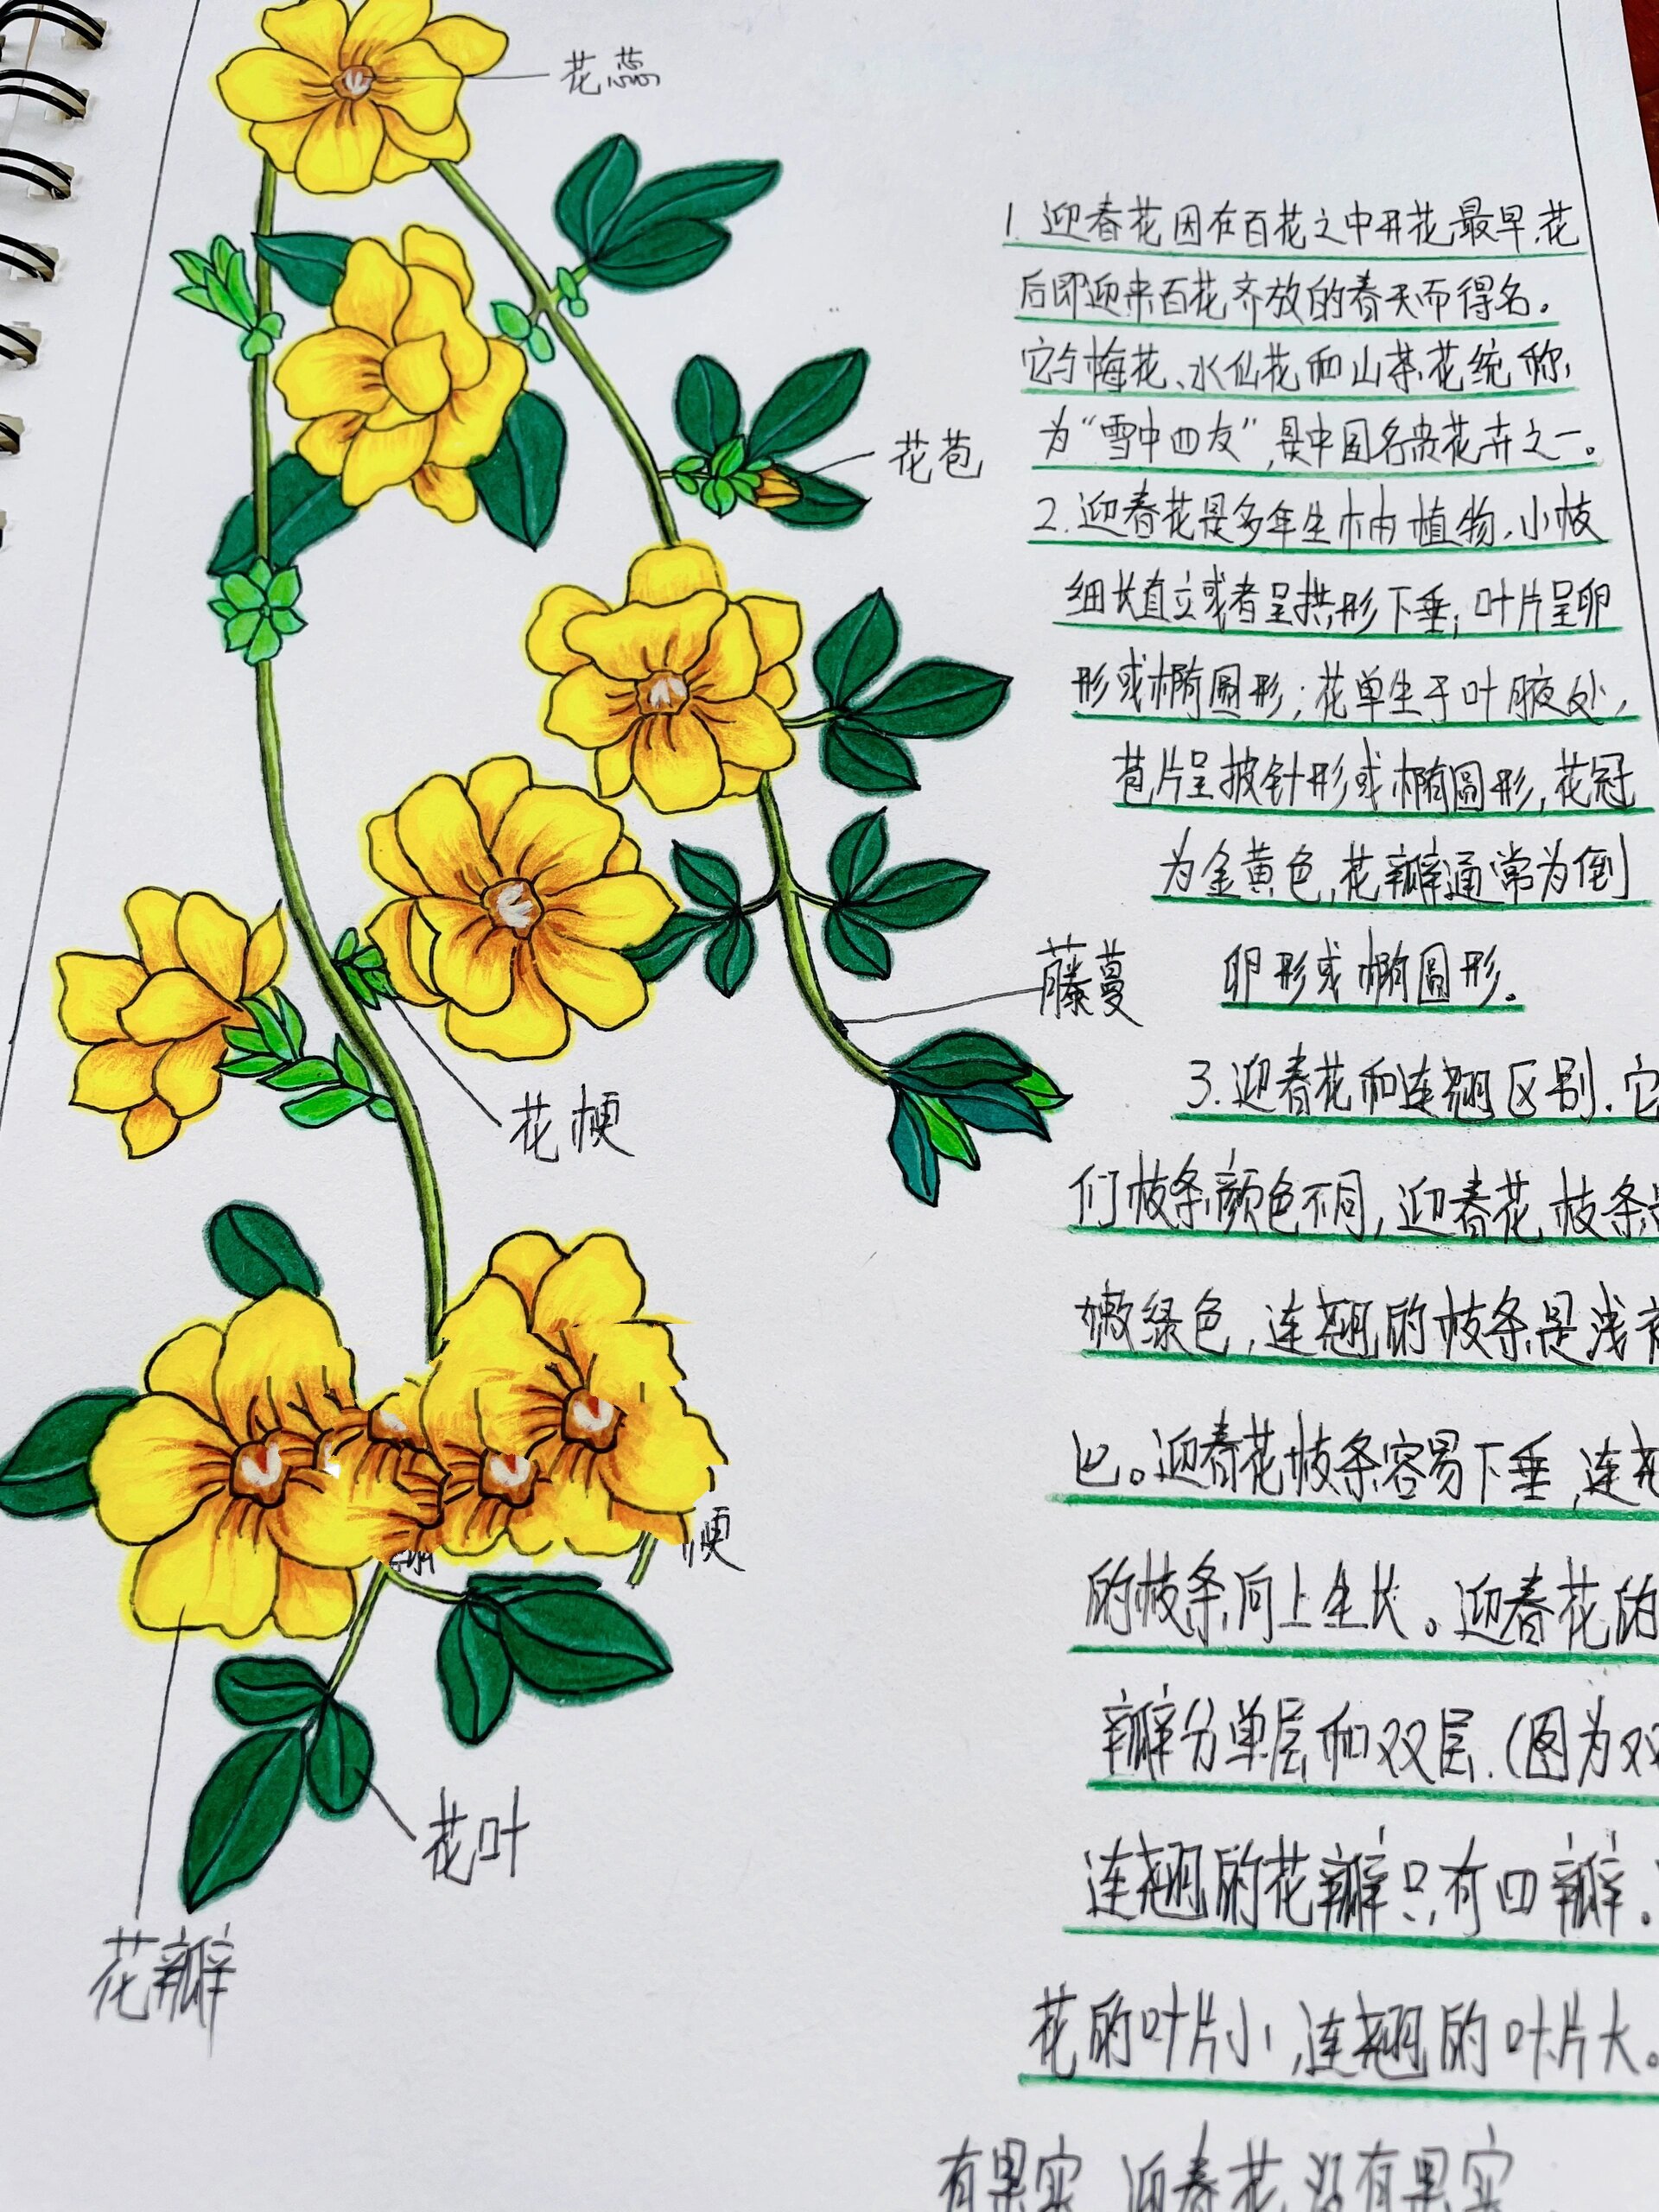 花蕊
1.迎春花因在百花之中开花最早,花
后即迎来百花齐放的春天而得名。
它与梅花、水仙花和山茶花统称
为“雪中四友”,是中国名贵花卉之一。
花苞
2.迎春花是多年生木本植物,小枝
细长直立或者呈拱形下垂;叶片呈卵
形或椭圆形;花单生于叶腋处,
苞片呈披针形或椭圆形,花冠
为金黄色,花瓣通常为倒
卵形或椭圆形。
藤蔓
3.迎春花和连翘区别.它
花梗
们枝条颜色不同,迎春花枝条是
嫩绿色,连翘的枝条是浅
色。迎春花枝条容易下垂,连
梗
的枝条向上生长。迎春花的
瓣分单层和双层.(图为双
花叶
连翘的花瓣只有四瓣。
花瓣
花的叶片小,连翘的叶片大。
有果实 迎春花没有果实